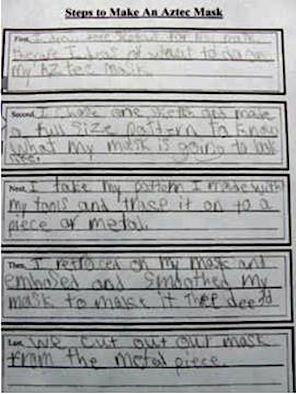 Steps to Make An Aztec Mask
First, I draw some for my mask.
Because I draw what to do on
my Aztec mask.
Second, I chose one sketch and make
a full size pattern to know
what my mask is going to look
see.
Next, I take my pattern I made with
my tools and trace it on to a
piece or metal.
Then, I retraced on my mask and
embosed and smoothed my
mask to make it
Last, We cut out our mask
from the metal piece.